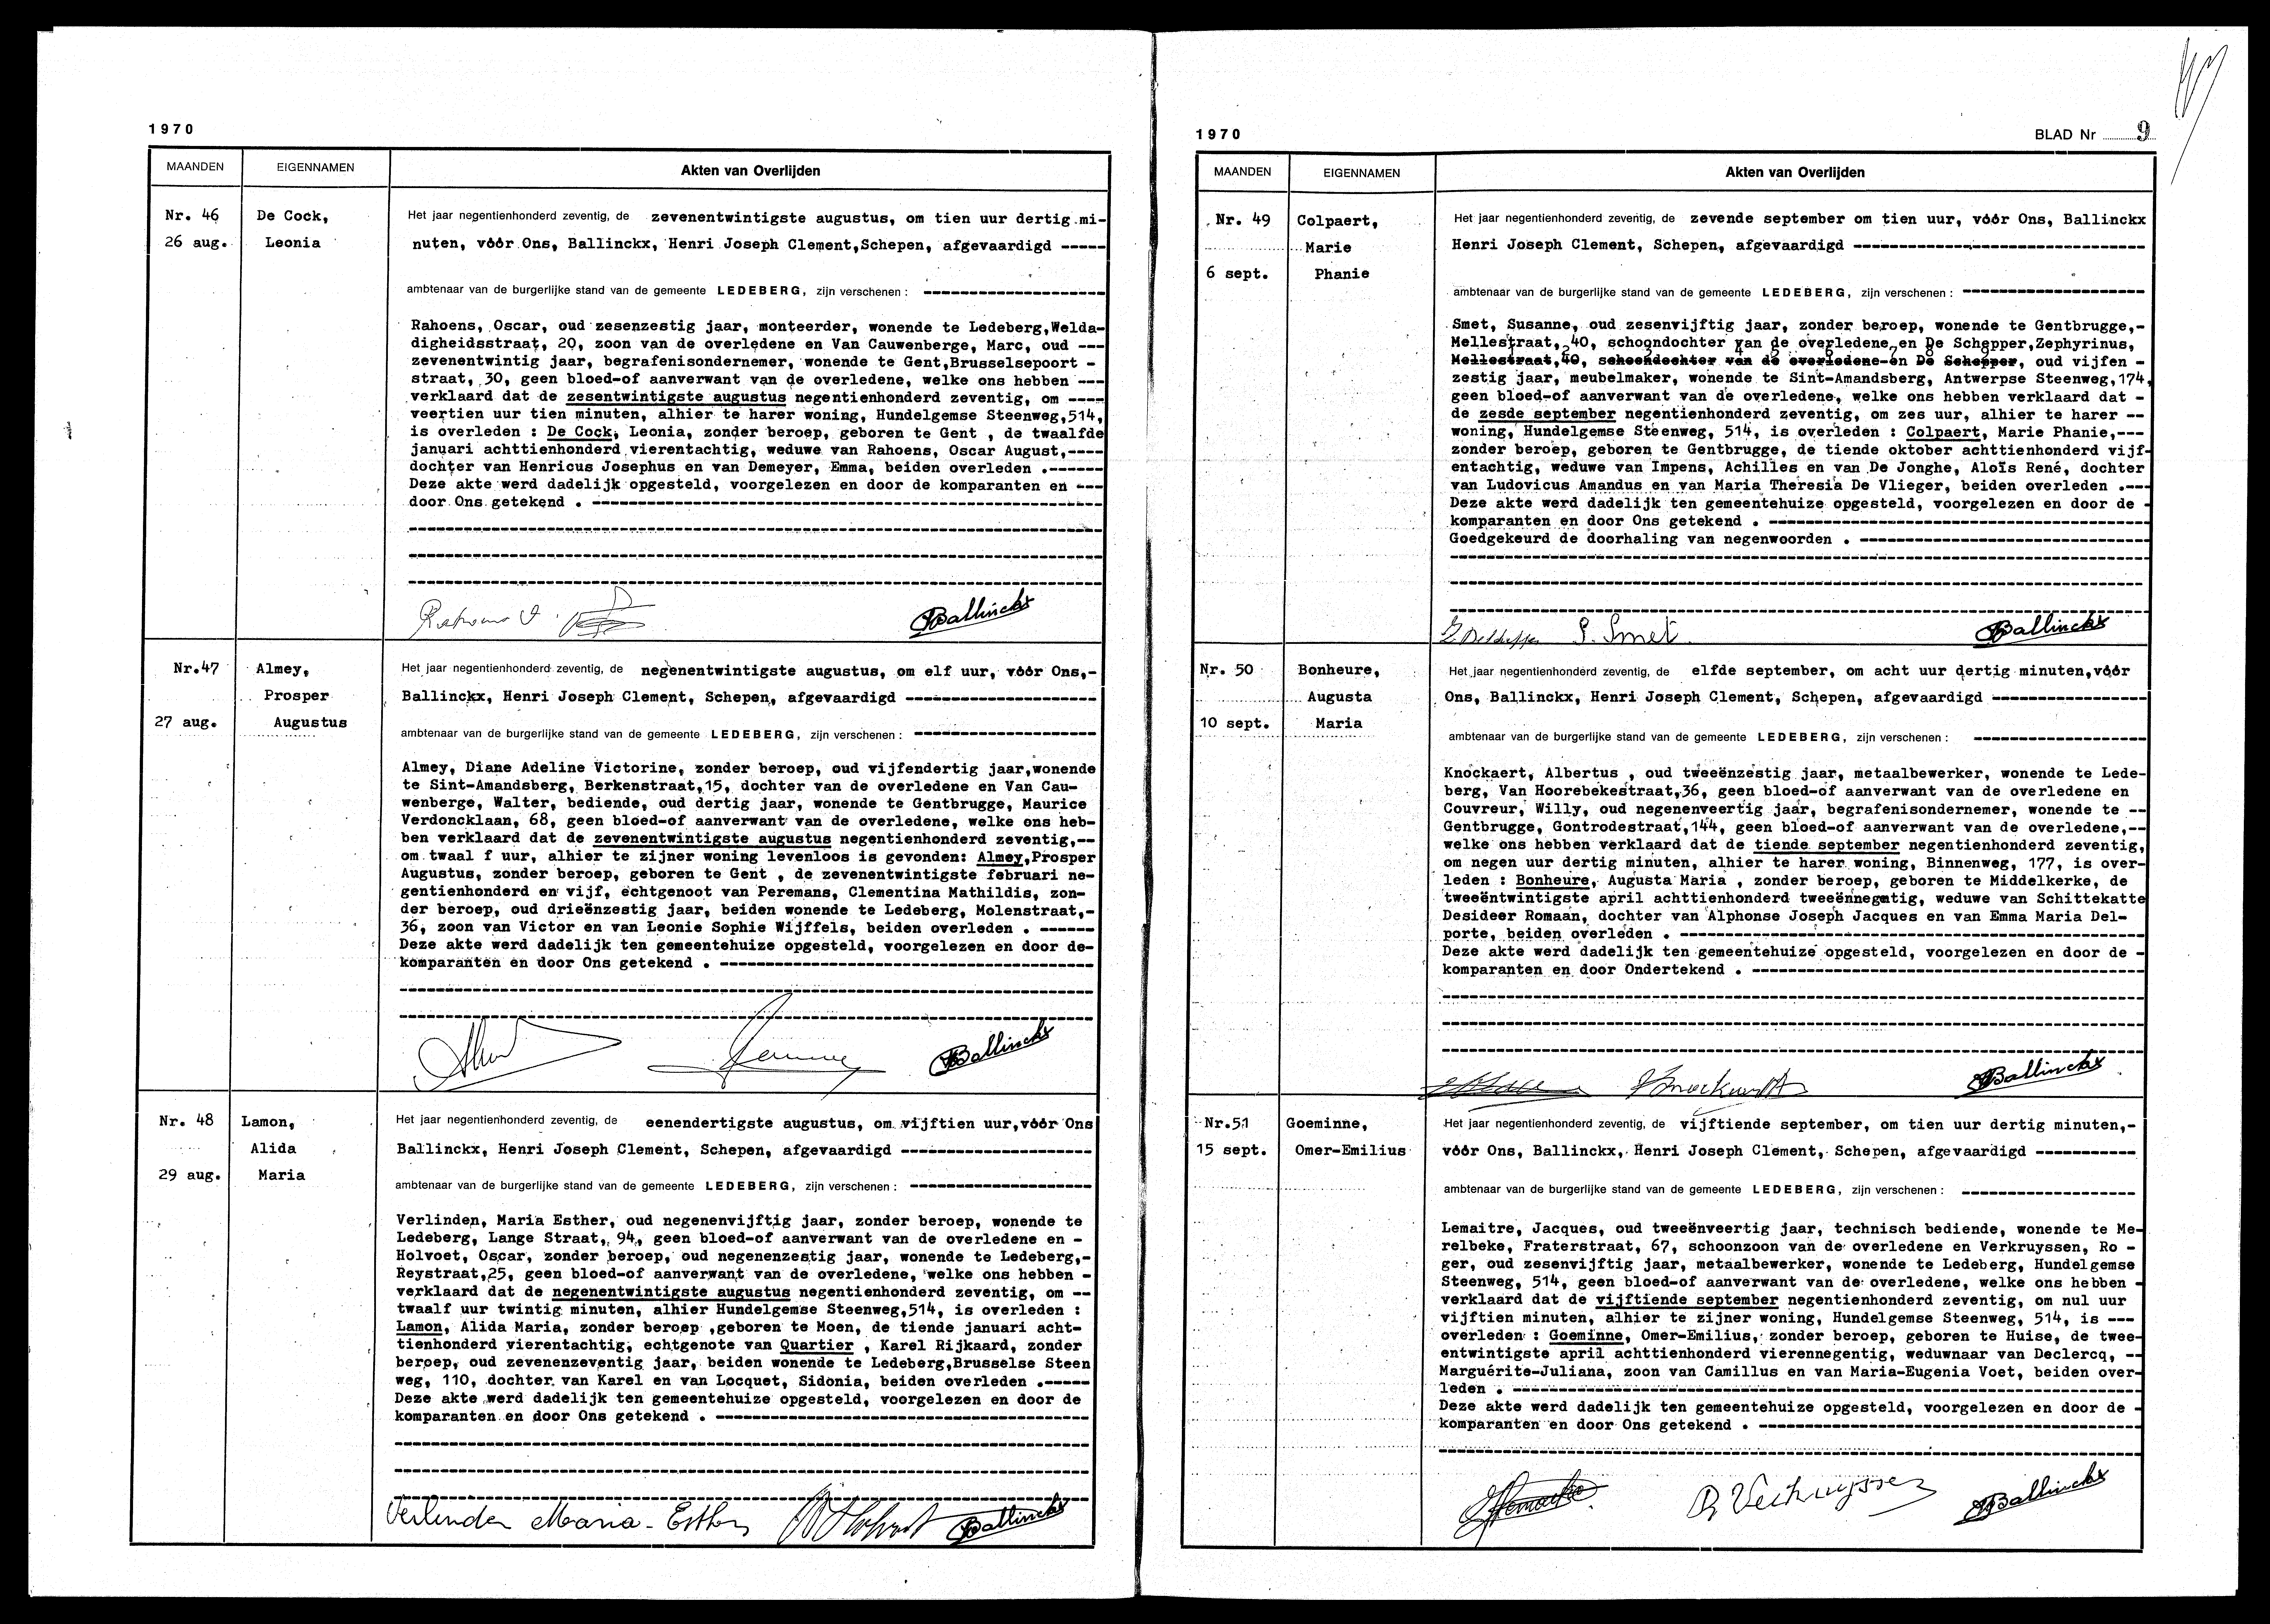 1970
MAANDEN EIGENNAMEN Akten van Overlijden
Nr. 46 De Cock, Het jaar negentienhonderd zeventig, de zevenentwintigste augustus, om tien uur dertig mi-
26 aug. Leonia nuten, vóór Ons, Ballinckx, Henri Joseph Clement,Schepen, afgevaardigd -----
ambtenaar van de burgerlijke stand van de gemeente LEDEBERG, zijn verschenen : --------------------
Rahoens, Oscar, oud zesenzestig jaar, monteerder, wonende te Ledeberg,Welda-
digheidsstraat, 20, zoon van de overledene en Van Cauwenberge, Marc, oud ---
zevenentwintig jaar, begrafenisondernemer, wonende te Gent,Brusselsepoort -
straat, 30, geen bloed-of aanverwant van de overledene, welke ons hebben ---
verklaard dat de zesentwintigste augustus negentienhonderd zeventig, om ----
veertien uur tien minuten, alhier te harer woning, Hundelgemse Steenweg,514,
is overleden : De Cock, Leonia, zonder beroep, geboren te Gent , de twaalfde
januari achttienhonderd vierentachtig, weduwe van Rahoens, Oscar August,----
dochter van Henricus Josephus en van Demeyer, Emma, beiden overleden .------
Deze akte werd dadelijk opgesteld, voorgelezen en door de komparanten en ---
door Ons getekend . --------------------
Rahoens O. Ballinckx
Nr.47 Almey, Het jaar negentienhonderd zeventig, de negenentwintigste augustus, om elf uur, vóór Ons,-
Prosper Ballinckx, Henri Joseph Clement, Schepen, afgevaardigd --------------------
27 aug. Augustus
ambtenaar van de burgerlijke stand van de gemeente LEDEBERG, zijn verschenen : --------------------
Almey, Diane Adeline Victorine, zonder beroep, oud vijfendertig jaar,wonende
te Sint-Amandsberg, Berkenstraat,15, dochter van de overledene en Van Cau-
wenberge, Walter, bediende, oud dertig jaar, wonende te Gentbrugge, Maurice
Verdoncklaan, 68, geen bloed-of aanverwant van de overledene, welke ons heb-
ben verklaard dat de zevenentwintigste augustus negentienhonderd zeventig,--
om twaal f uur, alhier te zijner woning levenloos is gevonden: Almey,Prosper
Augustus, zonder beroep, geboren te Gent , de zevenentwintigste februari ne-
gentienhonderd en vijf, echtgenoot van Peremans, Clementina Mathildis, zon-
der beroep, oud drieënzestig jaar, beiden wonende te Ledeberg, Molenstraat,-
36, zoon van Victor en van Leonie Sophie Wijffels, beiden overleden . ------
Deze akte werd dadelijk ten gemeentehuize opgesteld, voorgelezen en door de-
komparanten en door Ons getekend . --------------------
Ballinckx
Nr. 48 Lamon, Het jaar negentienhonderd zeventig, de eenendertigste augustus, om vijftien uur,vóór Ons
Alida Ballinckx, Henri Joseph Clement, Schepen, afgevaardigd --------------------
29 aug. Maria
ambtenaar van de burgerlijke stand van de gemeente LEDEBERG, zijn verschenen : --------------------
Verlinden, Maria Esther, oud negenenvijftig jaar, zonder beroep, wonende te
Ledeberg, Lange Straat, 94, geen bloed-of aanverwant van de overledene en -
Holvoet, Oscar, zonder beroep, oud negenenzestig jaar, wonende te Ledeberg,-
Reystraat,25, geen bloed-of aanverwant van de overledene, welke ons hebben -
verklaard dat de negenentwintigste augustus negentienhonderd zeventig, om --
twaalf uur twintig minuten, alhier Hundelgemse Steenweg,514, is overleden :
Lamon, Alida Maria, zonder beroep ,geboren te Moen, de tiende januari acht-
tienhonderd vierentachtig, echtgenote van Quartier , Karel Rijkaard, zonder
beroep, oud zevenenzeventig jaar, beiden wonende te Ledeberg,Brusselse Steen
weg, 110, dochter van Karel en van Locquet, Sidonia, beiden overleden .-----
Deze akte werd dadelijk ten gemeentehuize opgesteld, voorgelezen en door de
komparanten en door Ons getekend . --------------------
Verlinden Maria-Esther Ballinckx
1970 BLAD Nr 9
MAANDEN EIGENNAMEN Akten van Overlijden
Nr. 49 Colpaert, Het jaar negentienhonderd zeventig, de zevende september om tien uur, vóór Ons, Ballinckx
Marie Henri Joseph Clement, Schepen, afgevaardigd --------------------
6 sept. Phanie
ambtenaar van de burgerlijke stand van de gemeente LEDEBERG, zijn verschenen : --------------------
Smet, Susanne, oud zesenvijftig jaar, zonder beroep, wonende te Gentbrugge,-
Mellestraat, 40, schoondochter van de overledene en De Schepper,Zephyrinus,
Mellestraat,40, schoondochter van de overledene-en De Schepper, oud vijfen -
zestig jaar, meubelmaker, wonende te Sint-Amandsberg, Antwerpse Steenweg,174,
geen bloed-of aanverwant van de overledene, welke ons hebben verklaard dat -
de zesde september negentienhonderd zeventig, om zes uur, alhier te harer --
woning, Hundelgemse Steenweg, 514, is overleden : Colpaert, Marie Phanie,---
zonder beroep, geboren te Gentbrugge, de tiende oktober achttienhonderd vijf-
entachtig, weduwe van Impens, Achilles en van De Jonghe, Aloïs René, dochter
van Ludovicus Amandus en van Maria Theresia De Vlieger, beiden overleden .---
Deze akte werd dadelijk ten gemeentehuize opgesteld, voorgelezen en door de -
komparanten en door Ons getekend . --------------------
Goedgekeurd de doorhaling van negenwoorden . --------------------
S. Smet Ballinckx
Nr. 50 Bonheure, Het jaar negentienhonderd zeventig, de elfde september, om acht uur dertig minuten,vóór
Augusta Ons, Ballinckx, Henri Joseph Clement, Schepen, afgevaardigd ----------------
10 sept. Maria
ambtenaar van de burgerlijke stand van de gemeente LEDEBERG, zijn verschenen : --------------------
Knockaert, Albertus , oud tweeënzestig jaar, metaalbewerker, wonende te Lede-
berg, Van Hoorebekestraat,36, geen bloed-of aanverwant van de overledene en
Couvreur, Willy, oud negenenveertig jaar, begrafenisondernemer, wonende te --
Gentbrugge, Gontrodestraat,144, geen bloed-of aanverwant van de overledene,--
welke ons hebben verklaard dat de tiende september negentienhonderd zeventig,
om negen uur dertig minuten, alhier te harer woning, Binnenweg, 177, is over-
leden : Bonheure, Augusta Maria , zonder beroep, geboren te Middelkerke, de
tweeëntwintigste april achttienhonderd tweeënnegatig, weduwe van Schittekatte
Desideer Romaan, dochter van Alphonse Joseph Jacques en van Emma Maria Del-
porte, beiden overleden . --------------------
Deze akte werd dadelijk ten gemeentehuize opgesteld, voorgelezen en door de -
komparanten en door Ondertekend . --------------------
Knockaert A Ballinckx
Nr.51 Goeminne, Het jaar negentienhonderd zeventig, de vijftiende september, om tien uur dertig minuten,-
15 sept. Omer-Emilius vóór Ons, Ballinckx, Henri Joseph Clement, Schepen, afgevaardigd -----------
ambtenaar van de burgerlijke stand van de gemeente LEDEBERG, zijn verschenen : --------------------
Lemaitre, Jacques, oud tweeënveertig jaar, technisch bediende, wonende te Me-
relbeke, Fraterstraat, 67, schoonzoon van de overledene en Verkruyssen, Ro -
ger, oud zesenvijftig jaar, metaalbewerker, wonende te Ledeberg, Hundelgemse
Steenweg, 514, geen bloed-of aanverwant van de overledene, welke ons hebben -
verklaard dat de vijftiende september negentienhonderd zeventig, om nul uur
vijftien minuten, alhier te zijner woning, Hundelgemse Steenweg, 514, is ---
overleden : Goeminne, Omer-Emilius, zonder beroep, geboren te Huise, de twee-
entwintigste april achttienhonderd vierennegentig, weduwnaar van Declercq, --
Marguérite-Juliana, zoon van Camillus en van Maria-Eugenia Voet, beiden over-
leden . --------------------
Deze akte werd dadelijk ten gemeentehuize opgesteld, voorgelezen en door de -
komparanten en door Ons getekend . --------------------
R Verkruyssen Ballinckx